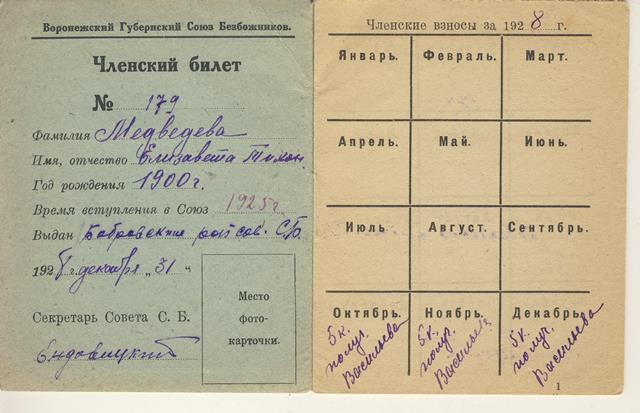 Воронежский Губернский Союз Безбожников.
Членский билет
№ 179
Фамилия Медведева
Имя, отчество Елизавета Тимон
Год рождения 1900 г.
Время вступления в Союз 1925 г
Выдан Бобровским райсов. С.Б.
192 г. декабря „31"
Секретарь Совета С. Б.
Место
фото-
карточки.
Членские взносы за 1928 г.
Январь. Февраль. Март.
Апрель. Май. Июнь.
Июль Август. Сентябрь.
Октябрь. Ноябрь. Декабрь.
5к. 5к. 5к.
получ. получ. получ.
Васильева Васильева Васильева
1